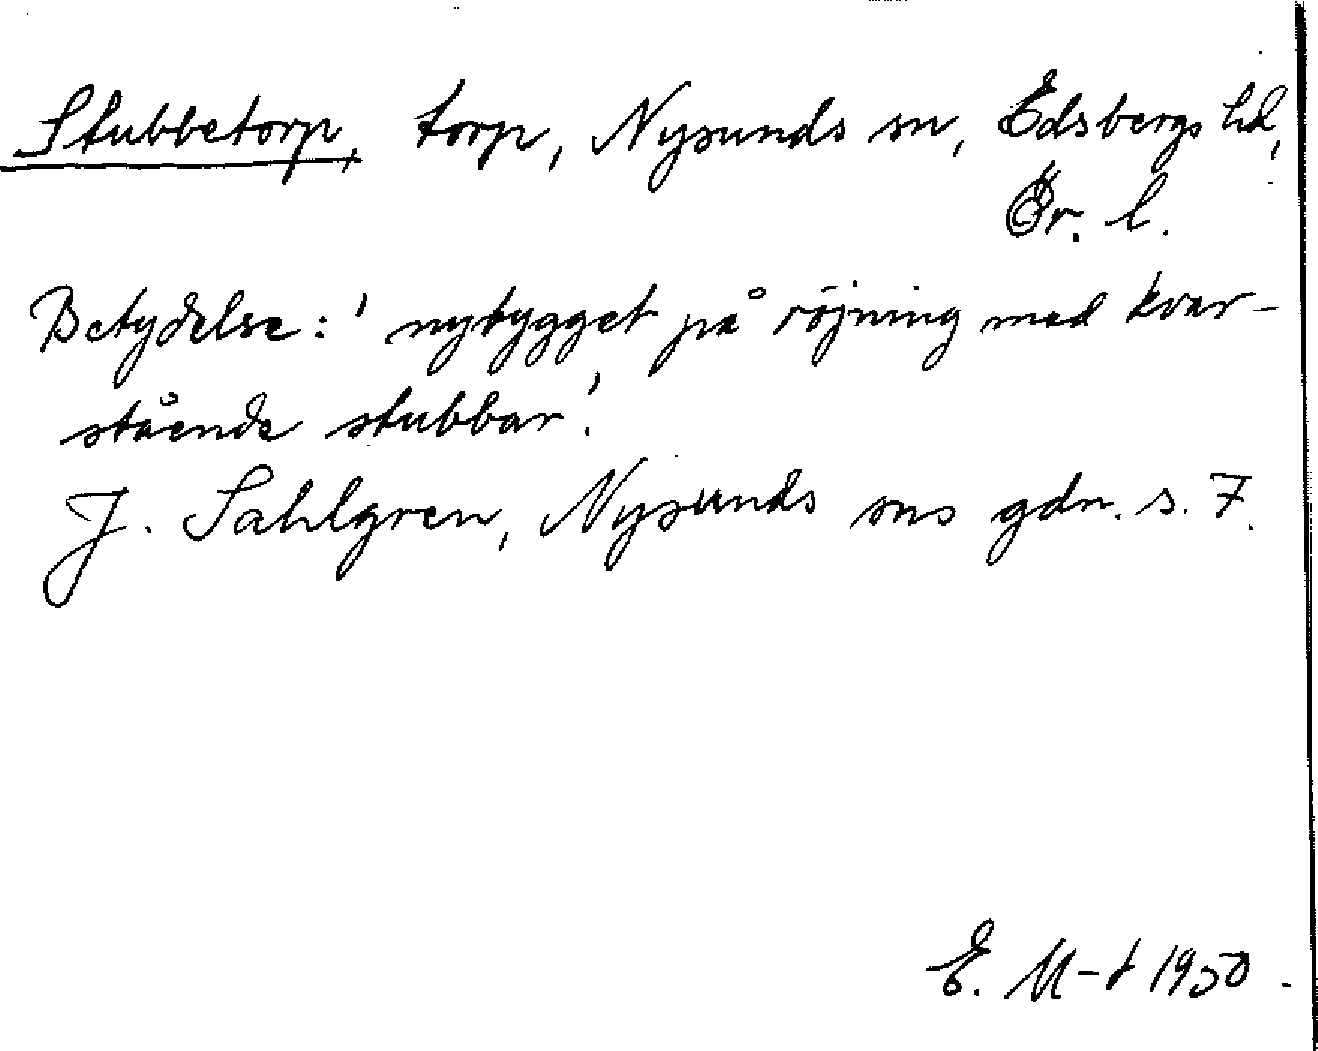 Stubbetorp, torp, Nysunds sn, Edsbergs hd,
Ör. l.
Betydelse: 'nybygget på röjning med kvar-
stående stubbar'.
J. Sahlgren, Nysunds sns gdn. s. 7.
E. M-t 1950.